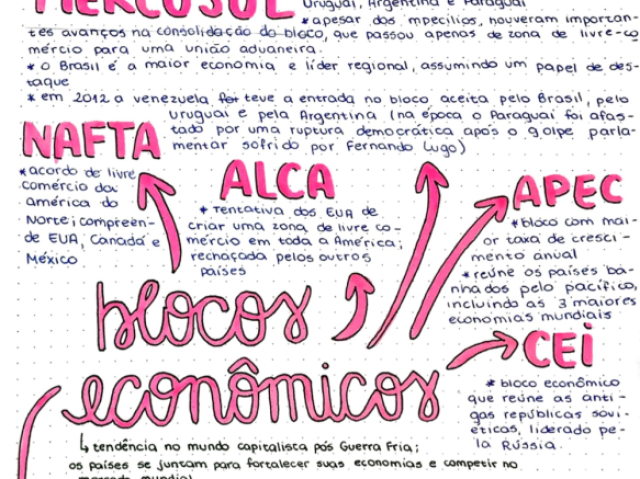 MERCOSUL Uruguai, Argentina e Paraguai
* apesar dos mpecílios, houveram importan-
tes avanços na consolidação do bloco, que passou apenas de zona de livre-co
mércio para uma união aduaneira.
* O Brasil é a maior economia e líder regional, assumindo um papel de des-
taque
* em 2012 a venezuela teve a entrada no bloco aceita pelo Brasil, pelo
uruguai e pela Argentina (na época o Paraguai foi afas-
tado por uma ruptura democrática após o golpe parla-
mentar sofrido por Fernando Lugo)
NAFTA
* acordo de livre
comércio da
américa do
Norte; compreen-
de EUA, Canadá e
México
ALCA
* Tentativa dos EUA de
criar uma zona de livre co-
mércio em toda a América;
rechaçada pelos outros
países
APEC
* bloco com mai-
or taxa de cresci-
mento anual
* reúne os países ba-
nhados pelo pacífico,
incluindo as 3 maiores
economias mundiais
CEI
* bloco econômico
que reúne as anti-
gas repúblicas sovi-
éticas, liderado pe-
la Rússia.
blocos
econômicos
↳ tendência no mundo capitalista pós Guerra Fria;
os países se juntam para fortalecer suas economias e competir no
mercado mundial